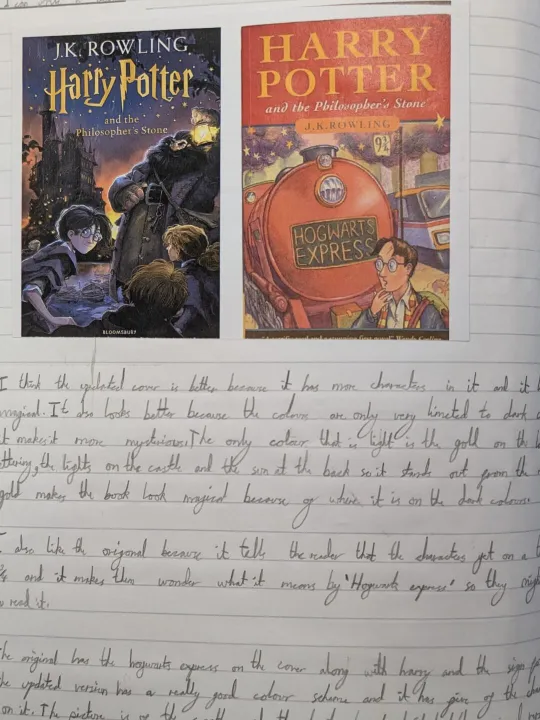 J.K. ROWLING
Harry Potter
and the
Philosopher's Stone
BLOOMSBURY
HARRY
POTTER
and the Philosopher's Stone
J.K.ROWLING
9¾
HOGWARTS
EXPRESS
I think the updated cover is better because it has more characters in it and it
magical. It also looks better because the colours are only very limeted to dark
it makes it more mysterious. The only colour that is light is the gold on the
lettering, the lights on the castle and the sun at the back so it stands out from the
gold makes the book look magical because of where it is on the dark colours.
I also like the origonal because it tells the reader that the characters get on a
and it makes them wonder what it means by 'Hogwarts express' so they might
read it.
The original has the hogwarts express on the cover along with harry and the sign
the updated version has a really good colour scheme and it has five of the
on it. The picture is of the